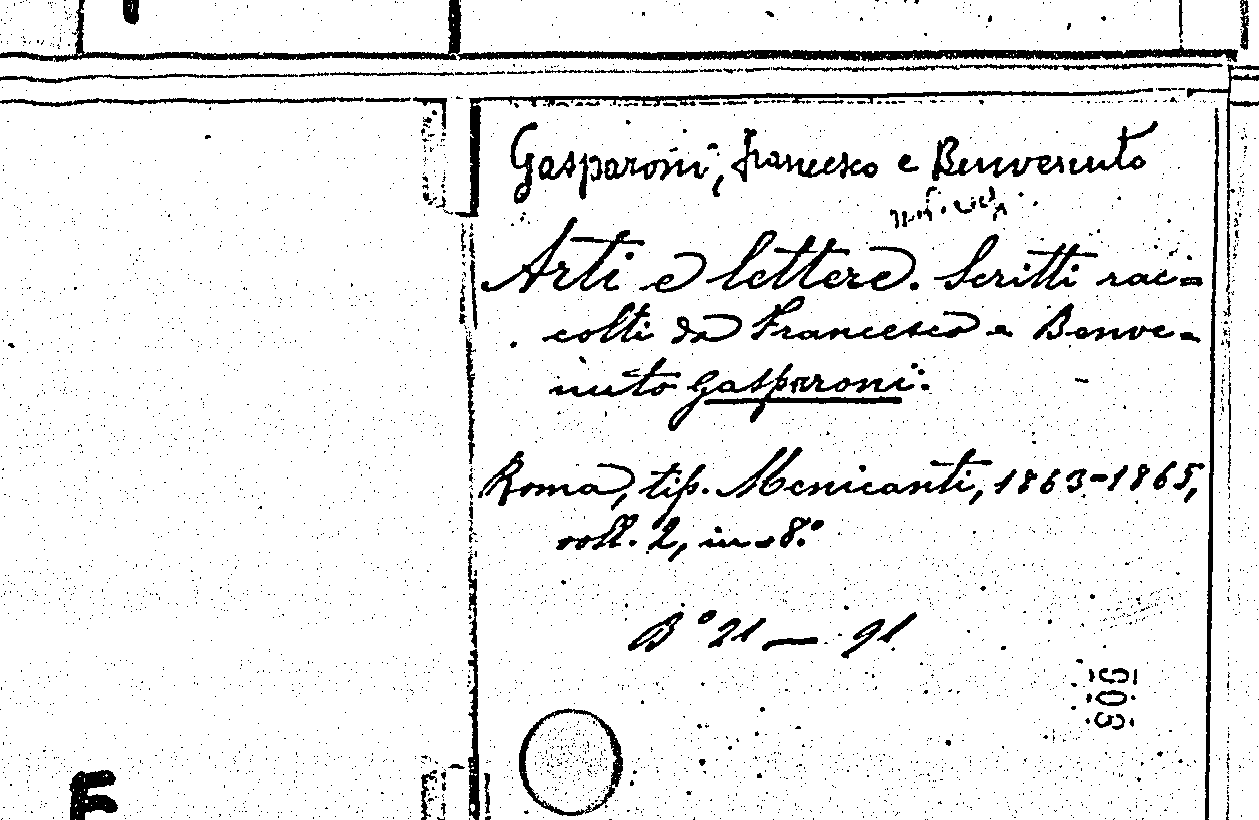 Gasparoni, Francesco e Benvenuto
Arti e lettere. Scritti rac-
colti da Francesco e Benve-
nuto Gasparoni.
Roma, tip. Menicanti, 1863-1865,
voll. 2, in-8.°
B° 21 — 91
903
F